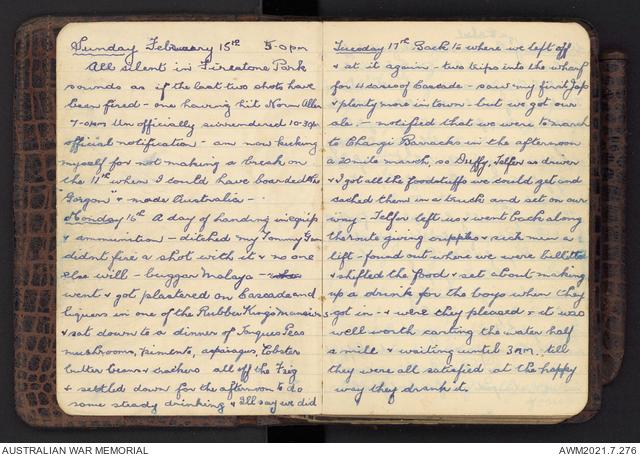 Sunday February 15th 5.0pm
All silent in Firestone Park
sounds as if the last two shots have
been fired - one having hit Norm Allen
7.0pm Unofficially surrendered 10.30pm
official notification - am now kicking
myself for not making a break on
the 11th when I could have boarded the
"Gorgon" & made Australia -
Monday 16th A day of handing in equip
& ammunition - ditched my Tommy Gun
didnt fire a shot with it & no one
else will - buggar Malaya -
went & got plastered on Cascade and
liquers in one of the Rubber Kings mansions
& sat down to a dinner of Tongues Peas
mushrooms, Pimento, asparagus, Lobster
butter beans & crackers all off the Frig
& settled down for the afternoon to do
some steady drinking & I'll say we did
Tuesday 17th Back to where we left off
& at it again - two trips into the wharf
for 4 cases of Cascade - saw my first Jap
& plenty more in town - but we got our
ale - notified that we were to march
to Changi Barracks in the afternoon
a 20 mile march, so Duffy, Telfer as driver
& I got all the foodstuffs we could get and
sached them in a truck and set on our
way - Telfer left us & went back along
the route giving cripples & sick men a
lift - found out where we were billeted
& shifted the food & set about making
up a drink for the boys when they
got in - & were they pleased & it was
well worth carting the water half
a mile & waiting until 3AM. till
they were all satisfied at the happy
way they drank it.
AUSTRALIAN WAR MEMORIAL
AWM2021.7.276